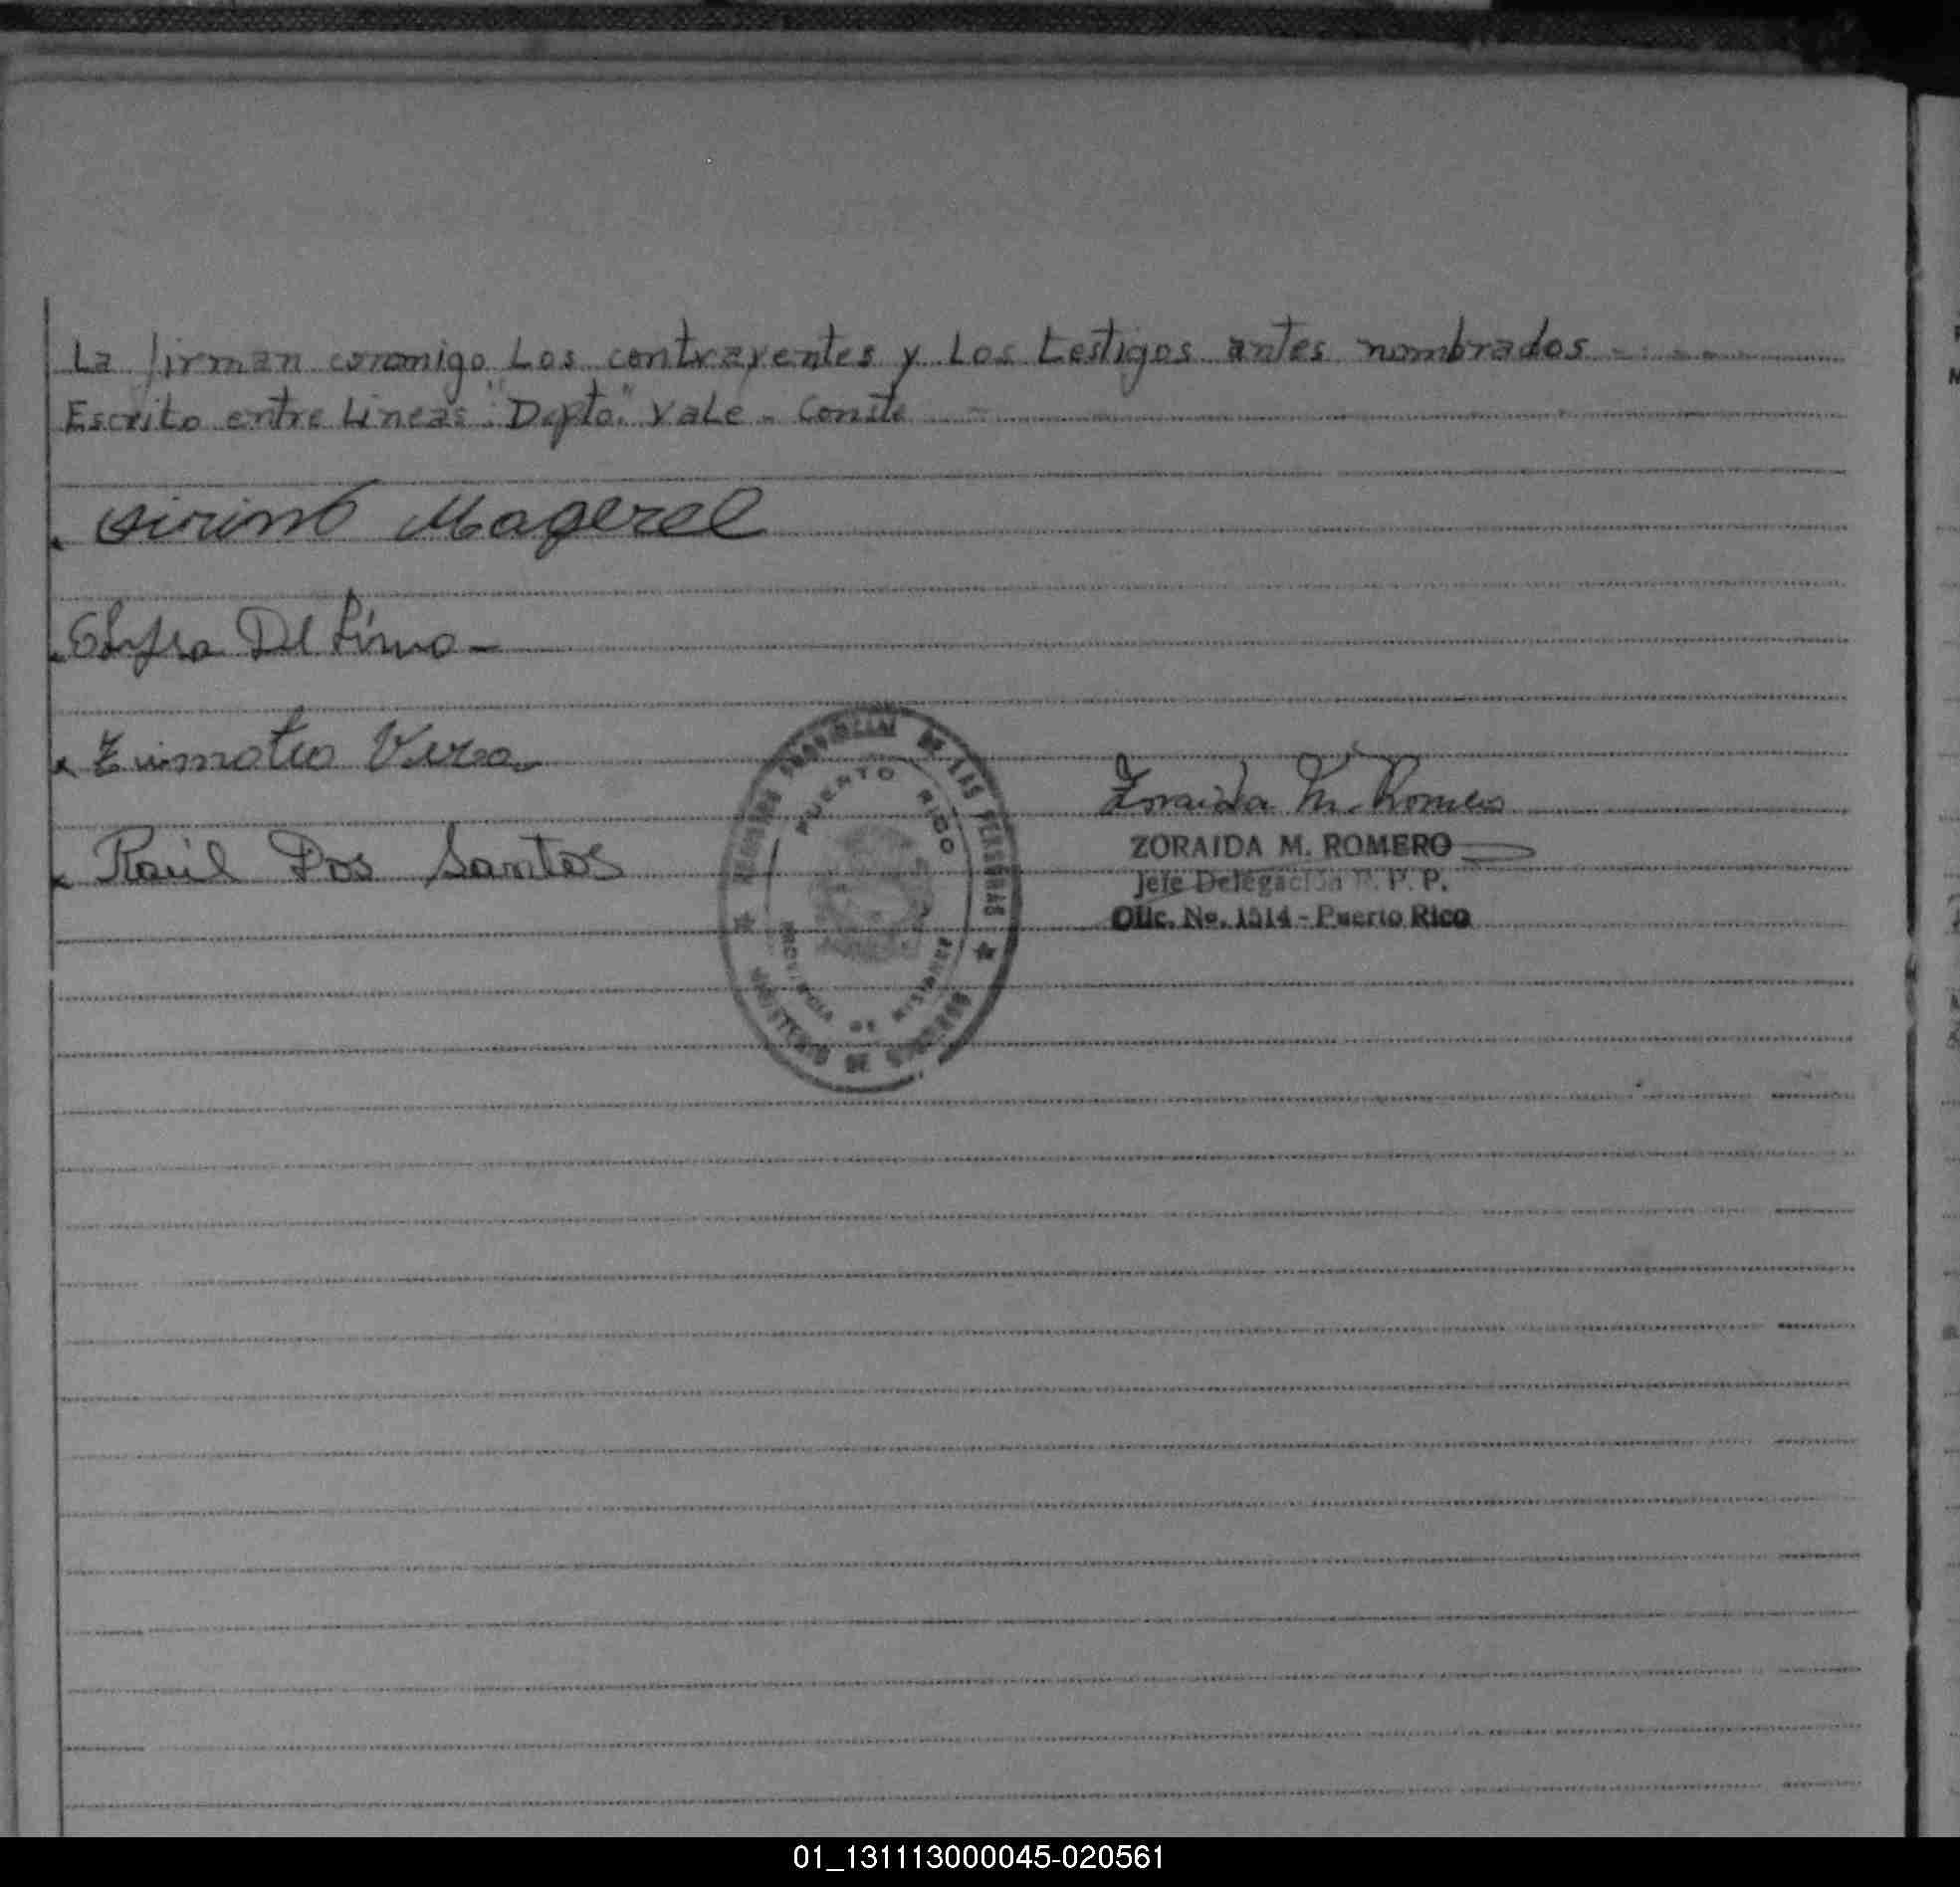 La firman conmigo Los contrayentes y Los testigos antes nombrados
Escrito entre Lineas: "Depto" Vale - Conste
Magerel
Del
Vera
Raúl Dos Santos
REGISTRO PROVINCIAL DE LAS PERSONAS
PUERTO RICO
PROVINCIA DE MISIONES
MINISTERIO DE GOBIERNO
Zoraida M. Romero
ZORAIDA M. ROMERO
Jefe Delegación R. P. P.
Ofic. No. 1514 - Puerto Rico
01_131113000045-020561